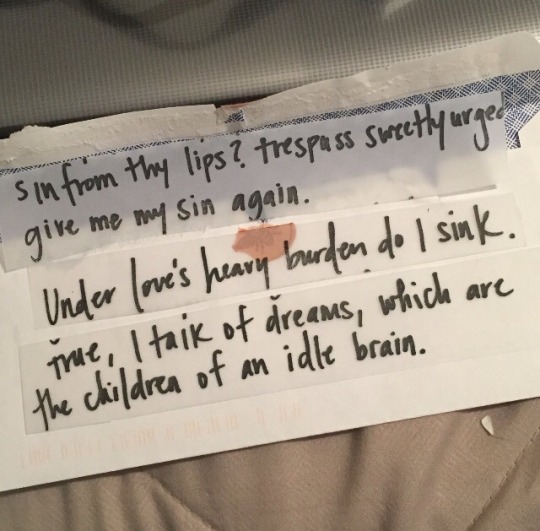 sin from thy lips? trespass sweetly urged
give me my sin again.
Under love's heavy burden do I sink.
True, I talk of dreams, which are
the children of an idle brain.